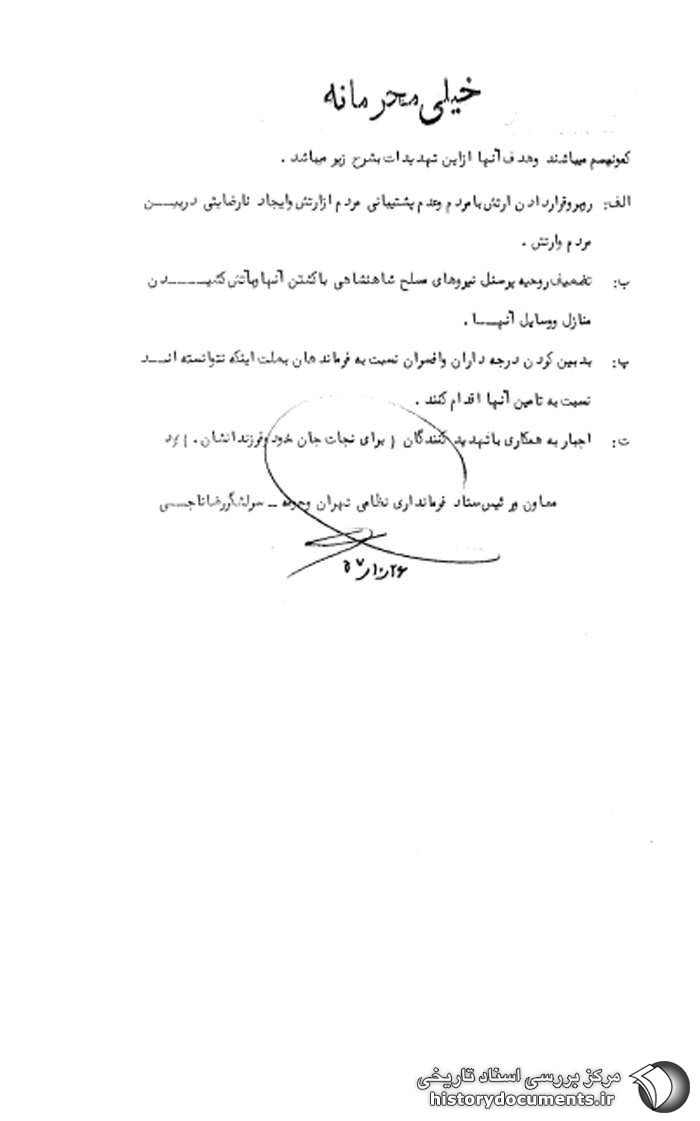 خیلی محرمانه
کمونیسم میباشند وهدف آنها ازاین تهدیدات بشرح زیر میباشد .
الف: روبروقراردادن ارتش بامردم وعدم پشتیبانی مردم ازارتش وایجاد نارضایتی دربیـــن
مردم وارتش .
ب: تضعیف روحیه پرسنل نیروهای مسلح شاهنشاهی باکشتن آنها وبآتش کشیـــــدن
منازل ووسایل آنهـــا .
پ: بدبین کردن درجه داران وافسران نسبت به فرماندهان بعلت اینکه نتوانسته انـــد
نسبت به تامین آنها اقدام کنند .
ت: اجبار به همکاری باتهدید کنندگان ( برای نجات جان خود وفرزندانشان . )
معاون و رئیس ستاد فرمانداری نظامی تهران وحومه ـ سرلشگررضا ناجـــی
۵۷٫۱۰٫۲۶
مرکز بررسی اسناد تاریخی
historydocuments.ir